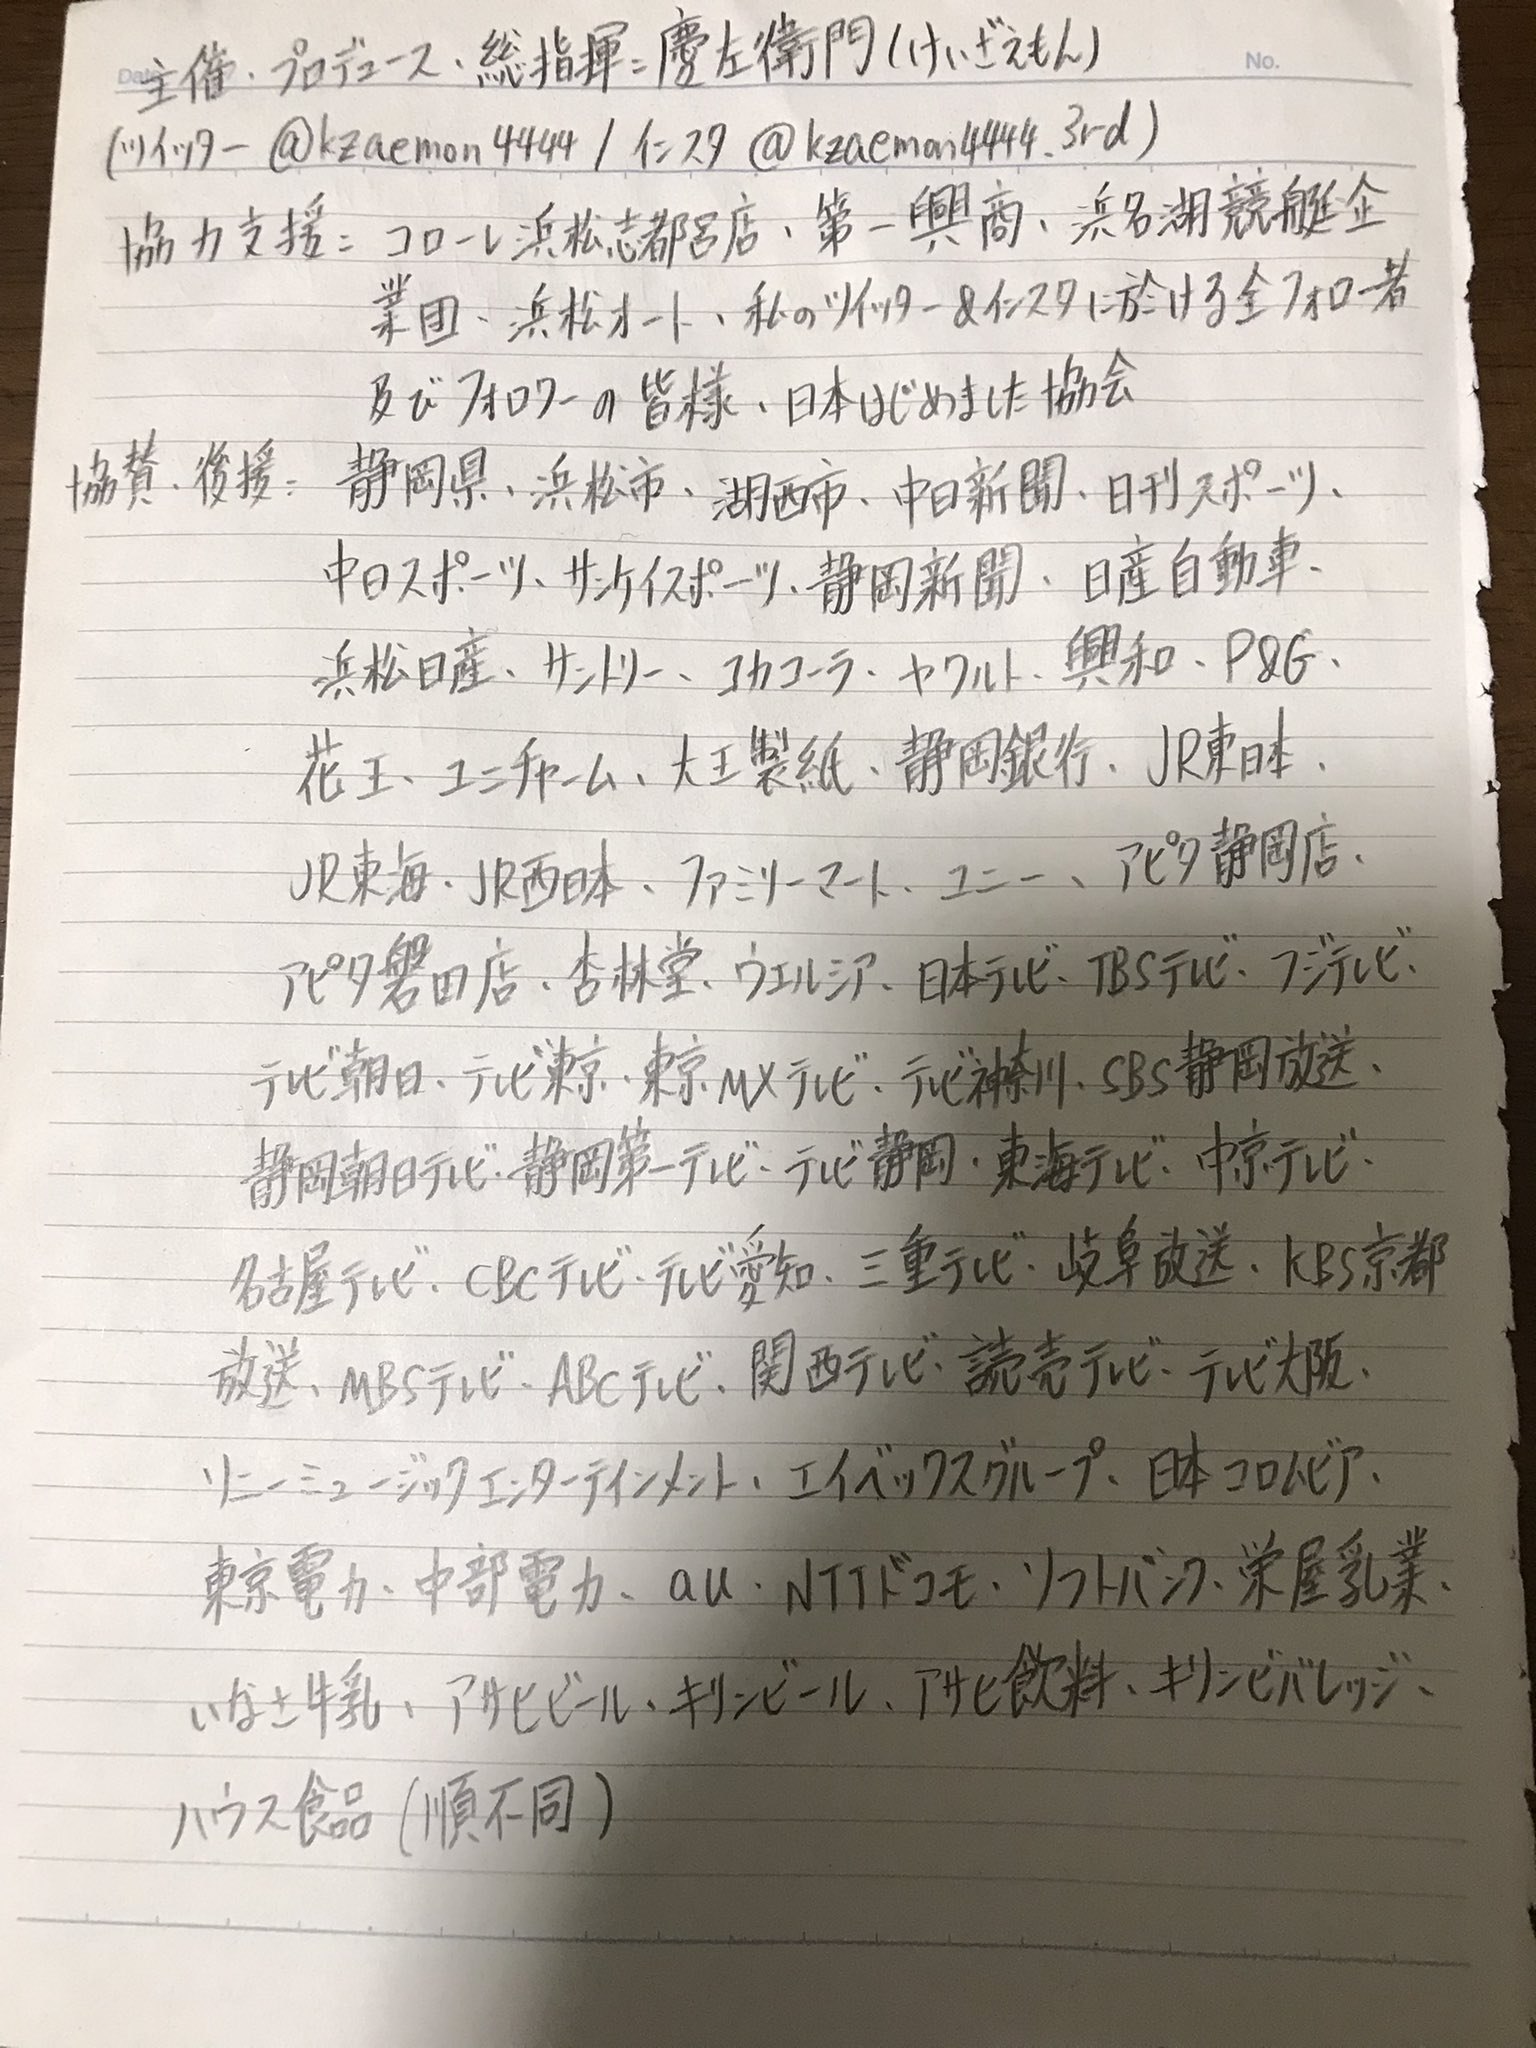 Date
No.
主催・プロデュース・総指揮=慶左衛門(けいざえもん)
(ツイッター @kzaemon4444 / インスタ @kzaemon4444.3rd)
協力支援=コロール浜松志都呂店、第一興商、浜名湖競艇企
業団、浜松オート、私のツイッター&インスタに於ける全フォロー者
及びフォロワーの皆様、日本はじめました協会
協賛・後援=静岡県、浜松市、湖西市、中日新聞、日刊スポーツ、
中日スポーツ、サンケイスポーツ、静岡新聞、日産自動車、
浜松日産、サントリー、コカコーラ、ヤクルト、興和、P&G、
花王、ユニチャーム、大王製紙、静岡銀行、JR東日本、
JR東海、JR西日本、ファミリーマート、ユニー、アピタ静岡店、
アピタ磐田店、杏林堂、ウエルシア、日本テレビ、TBSテレビ、フジテレビ、
テレビ朝日、テレビ東京、東京MXテレビ、テレビ神奈川、SBS静岡放送、
静岡朝日テレビ、静岡第一テレビ、テレビ静岡、東海テレビ、中京テレビ、
名古屋テレビ、CBCテレビ、テレビ愛知、三重テレビ、岐阜放送、KBS京都
放送、MBSテレビ、ABCテレビ、関西テレビ、読売テレビ、テレビ大阪、
ソニーミュージックエンターテインメント、エイベックスグループ、日本コロムビア、
東京電力、中部電力、au、NTTドコモ、ソフトバンク、栄屋乳業、
いなさ牛乳、アサヒビール、キリンビール、アサヒ飲料、キリンビバレッジ、
ハウス食品(順不同)